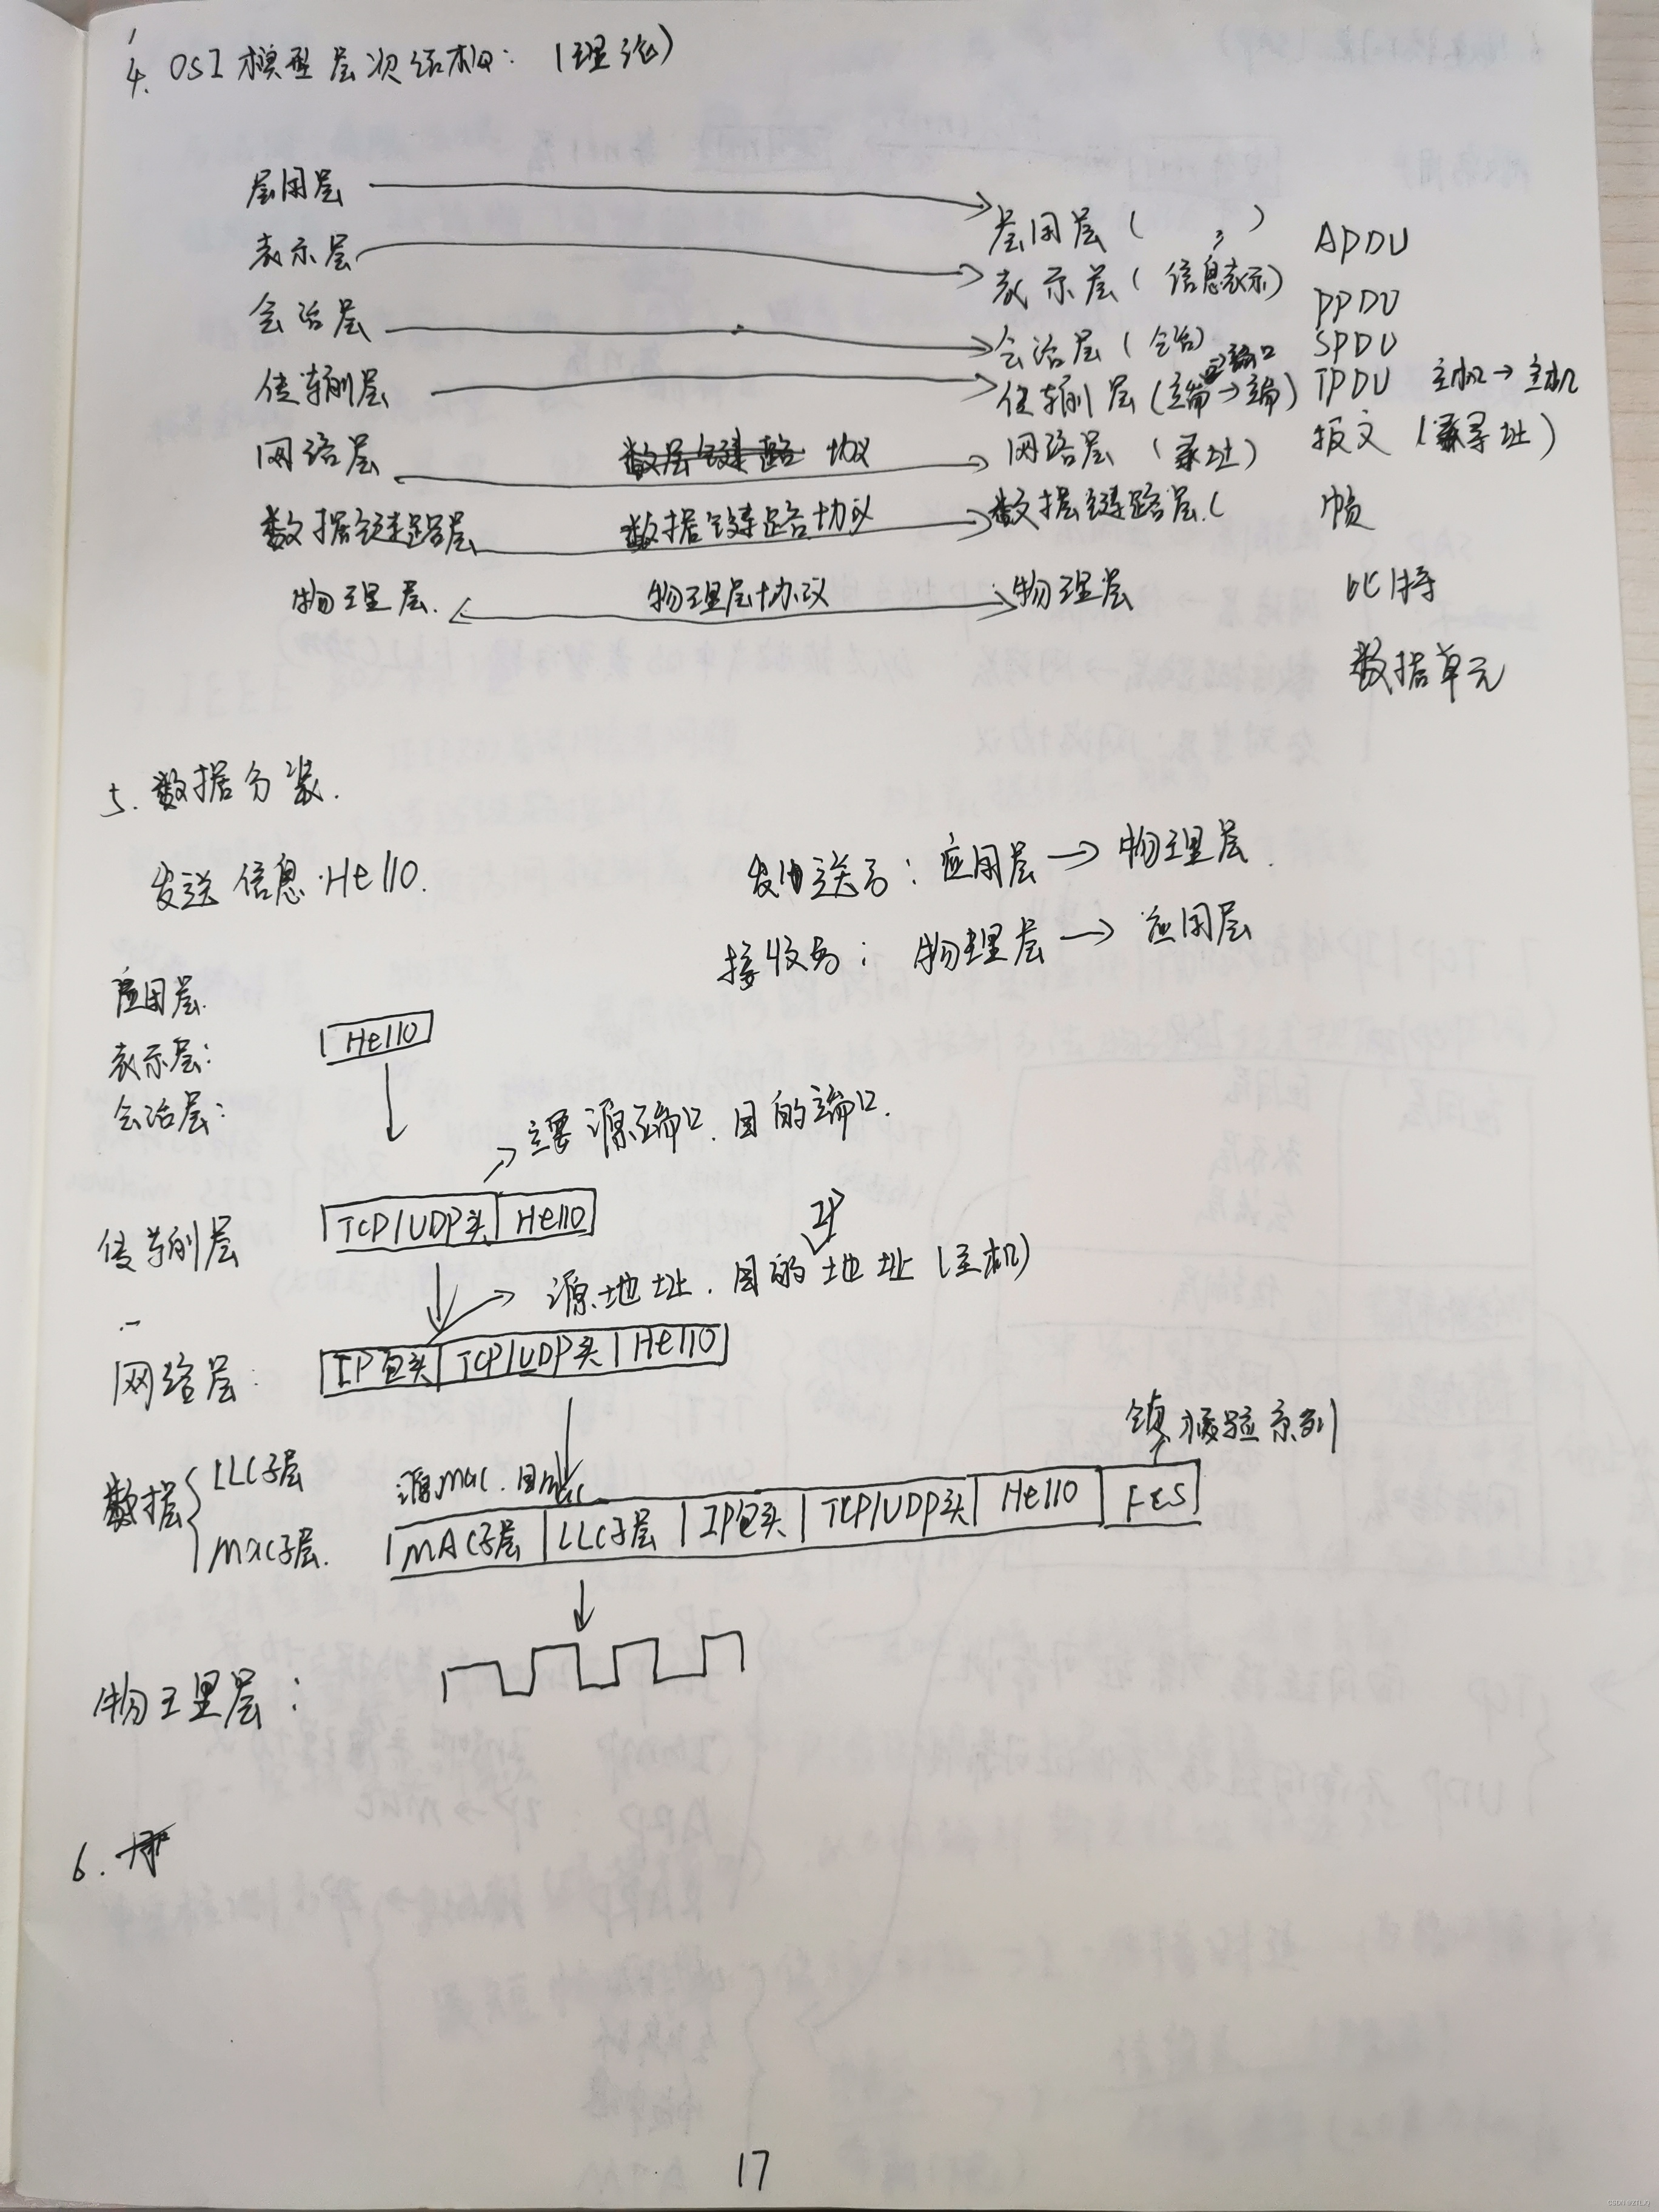 4. OSI 模型层次结构：（理论）
层用层 层用层（ ） APDU
表示层 表示层（信息表示） PPDU
会话层 会话层（会话） SPDU
端口
传输层 传输层（端→端） TPDU 主机→主机
网络层 协议 网络层（寻址） 报文（寻址）
数据链路层 数据链路协议 数据链路层（ 帧
物理层. 物理层协议 物理层 比特
数据单元
5. 数据分装.
发送信息. Hello.
发送方：应用层→物理层.
接收方：物理层→应用层
应用层.
表示层：
会话层：
Hello
主要源端口.目的端口.
传输层
TCP/UDP头 Hello
IP
源地址.目的地址（主机）
网络层：
IP包头 TCP/UDP头 Hello
数据 LLC子层
MAC子层.
源MAC.目MAC
校验系列
MAC子层 LLC子层 IP包头 TCP/UDP头 Hello FCS
物理层：
6.
17